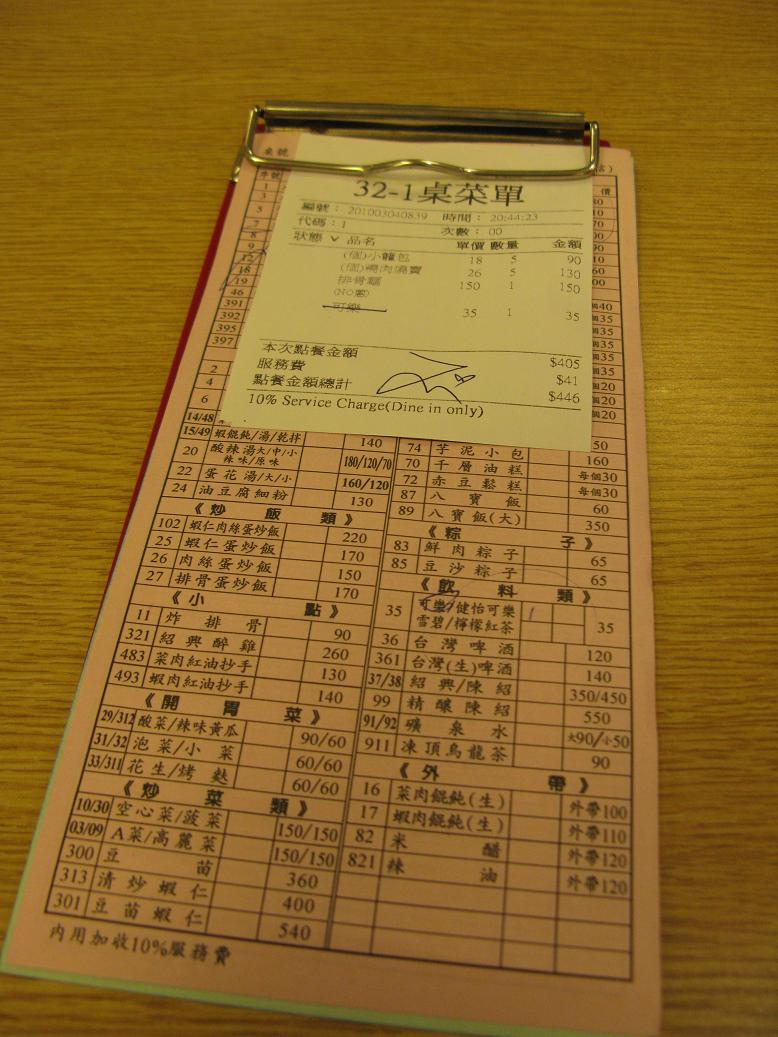 桌號
32-1桌菜單
編號：201003040839 時間：20:44:23
代碼：1 次數：00
狀態 V 品名 單價 數量 金額
(個)小籠包 18 5 90
(個)鴨肉燒賣 26 5 130
排骨麵 150 1 150
可樂 35 1 35
本次點餐金額 $405
服務費 $41
點餐金額總計 $446
10% Service Charge(Dine in only)
序號
價
1
3
5
7
8
9
12
18
19
46
391
392
395
397
2
4
6
14/48
15/49 蝦餛飩/湯/乾拌 140
20 酸辣湯大/中/小 辣味/原味 180/120/70
22 蛋花湯/大/小 160/120
24 油豆腐細粉 130
《炒飯類》
102 蝦仁肉絲蛋炒飯 220
25 蝦仁蛋炒飯 170
26 肉絲蛋炒飯 150
27 排骨蛋炒飯 170
《小點》
11 炸排骨 90
321 紹興醉雞 260
483 菜肉紅油抄手 130
493 蝦肉紅油抄手 140
《開胃菜》
29/312 酸菜/辣味黃瓜 90/60
31/32 泡菜/小菜 60/60
33/311 花生/烤麩 60/60
《炒菜類》
10/30 空心菜/菠菜 150/150
03/09 A菜/高麗菜 150/150
300 豆苗 360
313 清炒蝦仁 400
301 豆苗蝦仁 540
內用加收10%服務費
74 芋泥小包 50
70 千層油糕 160
72 赤豆鬆糕 每個30
87 八寶飯 60
89 八寶飯(大) 350
《粽子》
83 鮮肉粽子 65
85 豆沙粽子 65
《飲料類》
35 可樂/健怡可樂 雪碧/檸檬紅茶 1 35
36 台灣啤酒 120
361 台灣(生)啤酒 140
37/38 紹興/陳紹 350/450
99 精釀陳紹 550
91/92 礦泉水 大90/小50
911 凍頂烏龍茶 90
《外帶》
16 菜肉餛飩(生) 外帶100
17 蝦肉餛飩(生) 外帶110
82 米醋 外帶120
821 辣油 外帶120